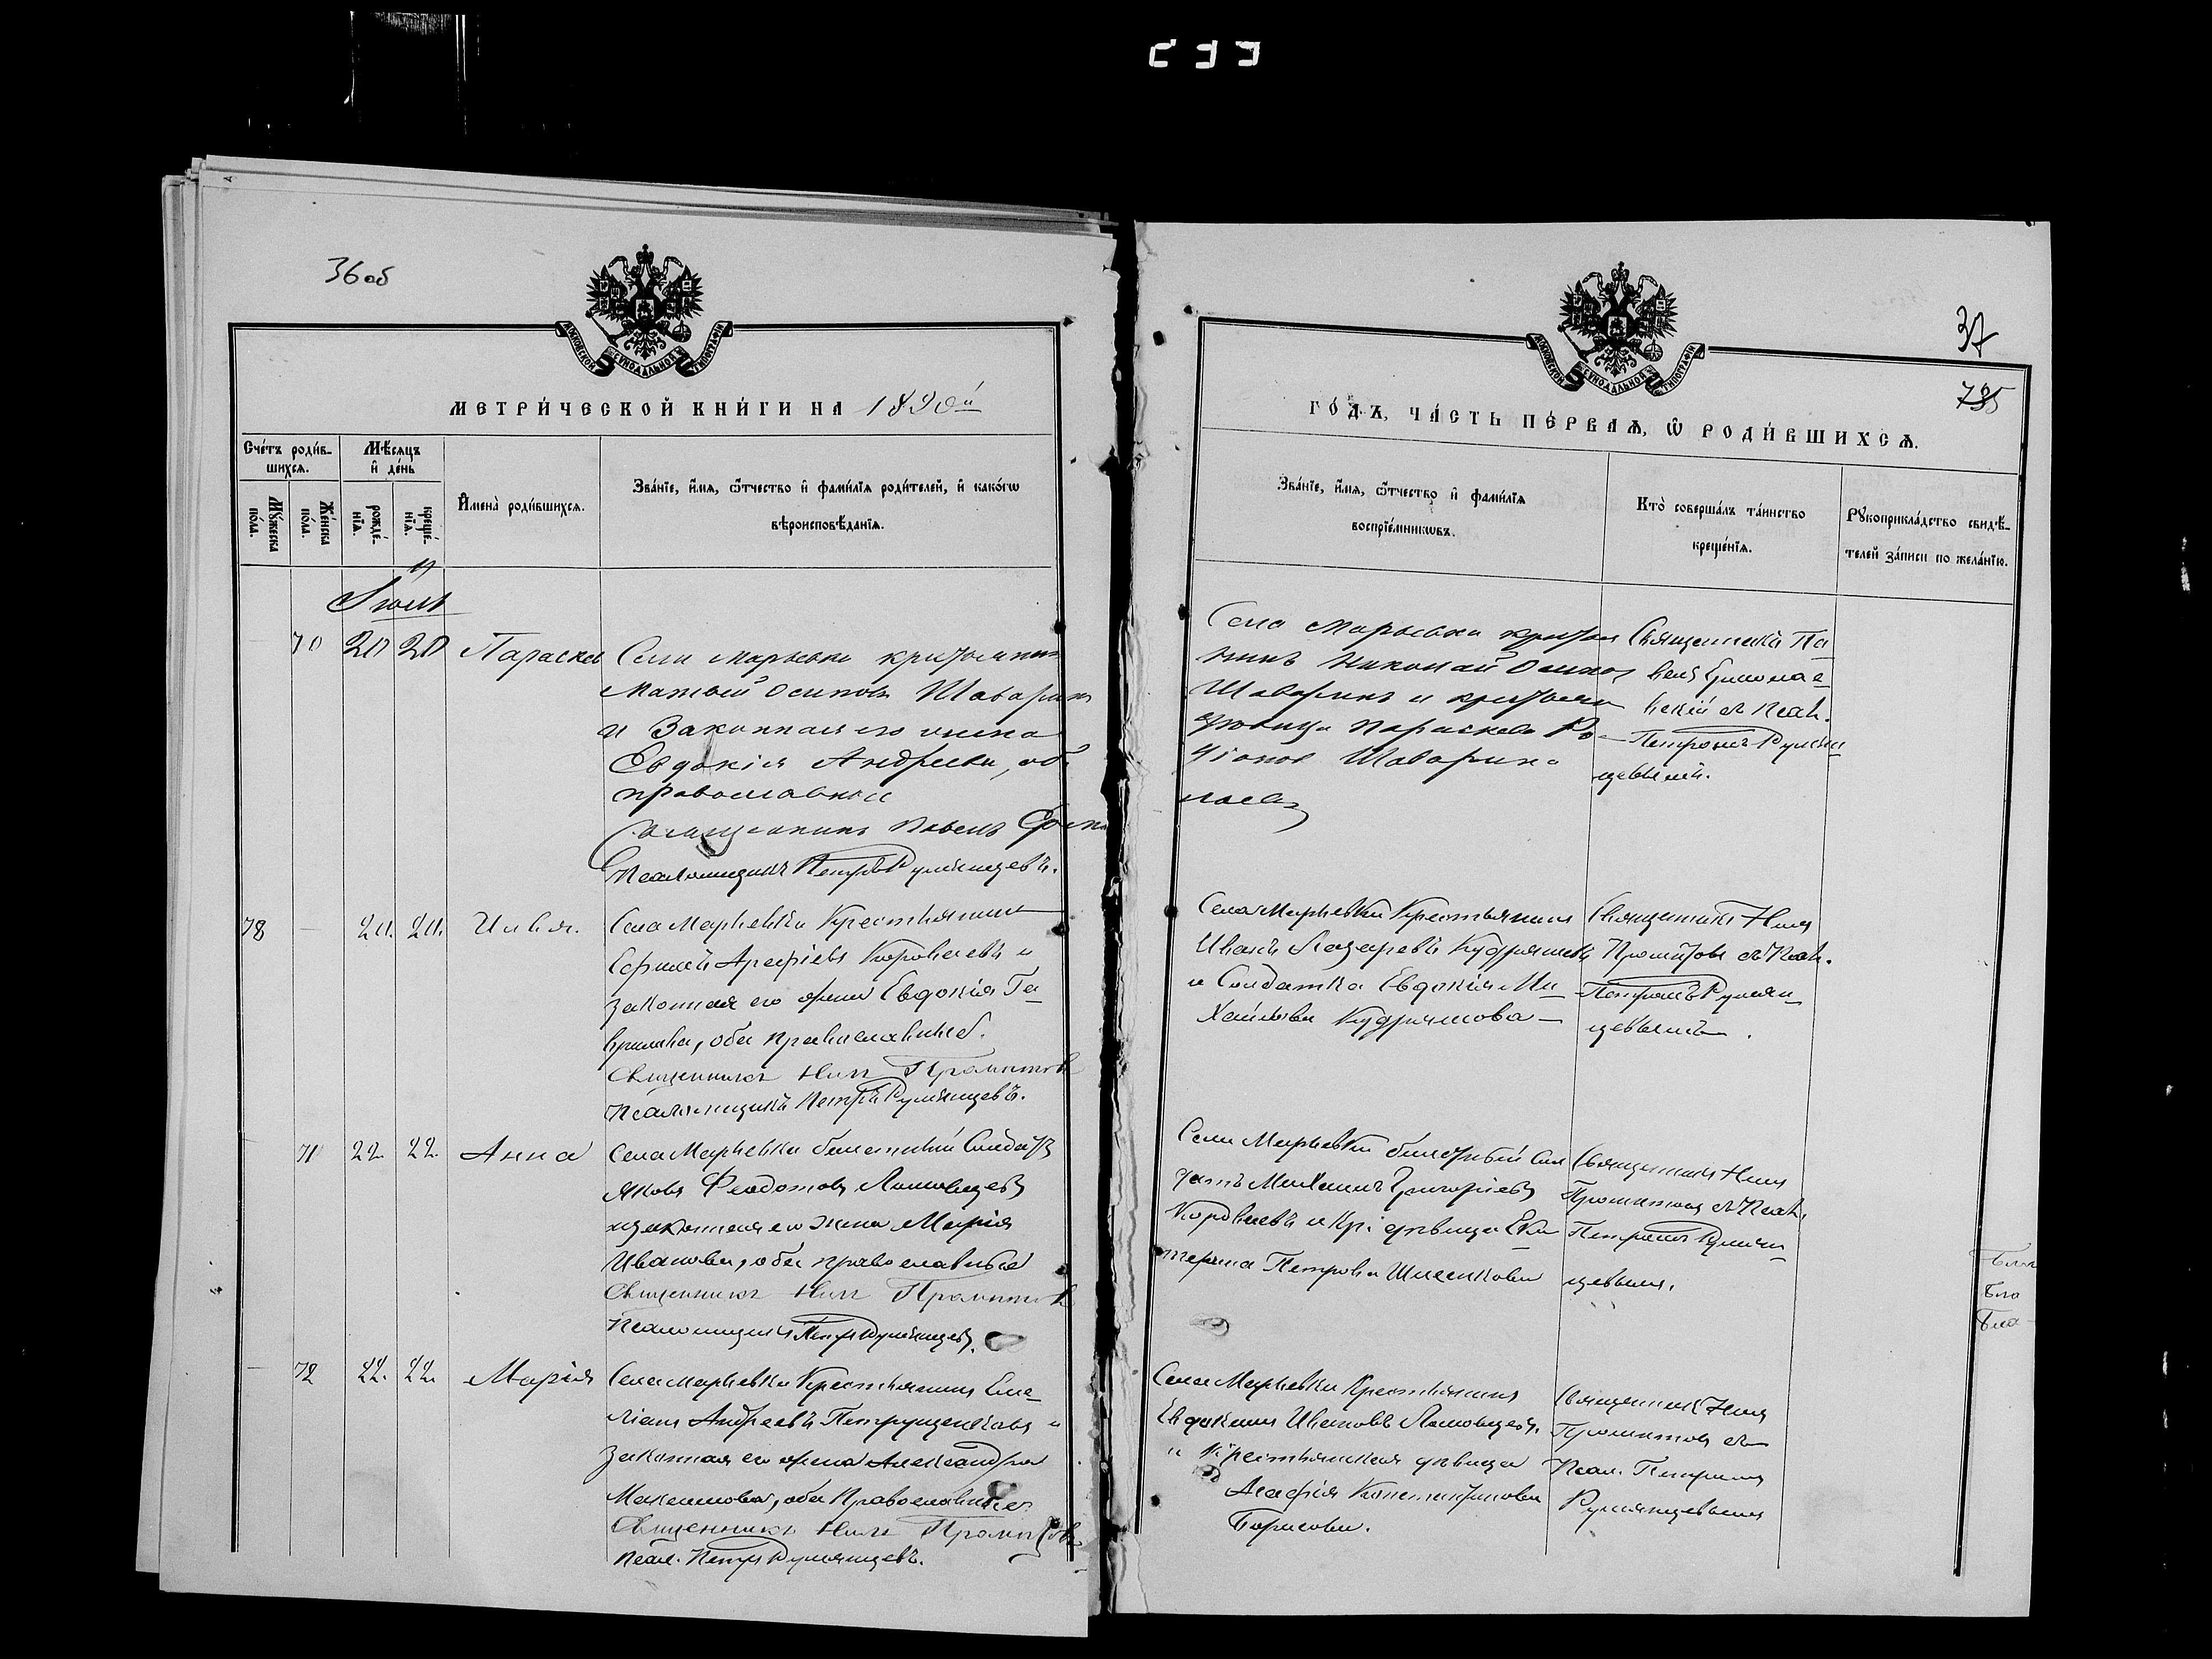 36 об
МОСКОВСКОЙ СѴНОДАЛЬНОЙ ТИПОГРАФІИ
МЕТРИ́ЧЕСКОЙ КНИ́ГИ НА 1890й
Сче́тъ роди́в-
шихсѧ.
Мѣ́сѧцъ
и҆ де́нь
Мꙋ́жеска
по́ла.
Же́нска
по́ла.
рожде́-
нїѧ.
креще́-
нїѧ.
И҆мена̀ роди́вшихсѧ.
Зва́нїе, и҆́мѧ, ѻ҆́тчество и҆ фами́лїѧ роди́телей, и҆ како́гѡ
вѣроисповѣ́данїѧ.
Іюль
70 20 20 Параскева
Села Марьевки крестьянин
Матвей Осипов Шаварин
и Законная его жена
Евдокія Андреева, об
православные
Священник Павел
Псаломщикъ Петръ Румянцевъ.
78 — 20. 20. Илья.
Села Марьевки Крестьянин
Ефимей Арефіевъ Коровяевъ и
законная его жена Евдокія Га-
врилова, оба православные.
Священникъ Нилъ
Псаломщикъ Петръ Румянцевъ.
71 22. 22. Анна
Села Марьевки билетный Солдатъ
Яковъ Феодотовъ
и законная его жена Марія
Иванова, оба православные
Священникъ Нилъ
Псаломщикъ Петръ Румянцевъ.
— 72 22. 22. Марія
Села Марьевки Крестьянинъ Еме-
ліанъ Андреевъ и
законная его жена Александра
Максимова, оба Православные
Священникъ Нилъ
Псал. Петръ Румянцевъ.
37
735
МОСКОВСКОЙ СѴНОДАЛЬНОЙ ТИПОГРАФІИ
ГО́ДЪ, ЧА́СТЬ ПЕ́РВАѦ, Ѡ҆ РОДИ́ВШИХСѦ.
Зва́нїе, и҆́мѧ, ѻ҆́тчество и҆ фами́лїѧ
воспрїе́мникѡвъ.
Кто̀ соверша́лъ та́инство
креще́нїѧ.
Рꙋкоприкла́дство свидѣ́-
телей за́писи по жела́нїю.
Села Марьевки крестья
нинъ Николай Осипов
Шаваринъ и крестьян
девица Параскева Ро-
діонов Шаварин
Священникъ Па-
вел
съ Псал.
Петромъ Румян-
цевымъ.
Села Марьевки Крестьянинъ
Иванъ Лазаревъ Кудряшевъ
и Солдатка Евдокія Ми-
хайлова Кудряшова —
Священникъ Нилъ
съ Псал.
Петромъ Румян-
цевымъ.
Села Марьевки билетный Сол
датъ Михаилъ Григорьевъ
Коровяевъ и Кр. девица Ека-
терина Петрова
Священникъ Нилъ
съ Псал.
Петромъ Румян-
цевымъ.
Села Марьевки Крестьянинъ
Евдокимъ Ивановъ
и Крестьянская девица
Агафія Константинова
Борисова.
Священник Нилъ
съ
Псал. Петромъ
Румянцевымъ